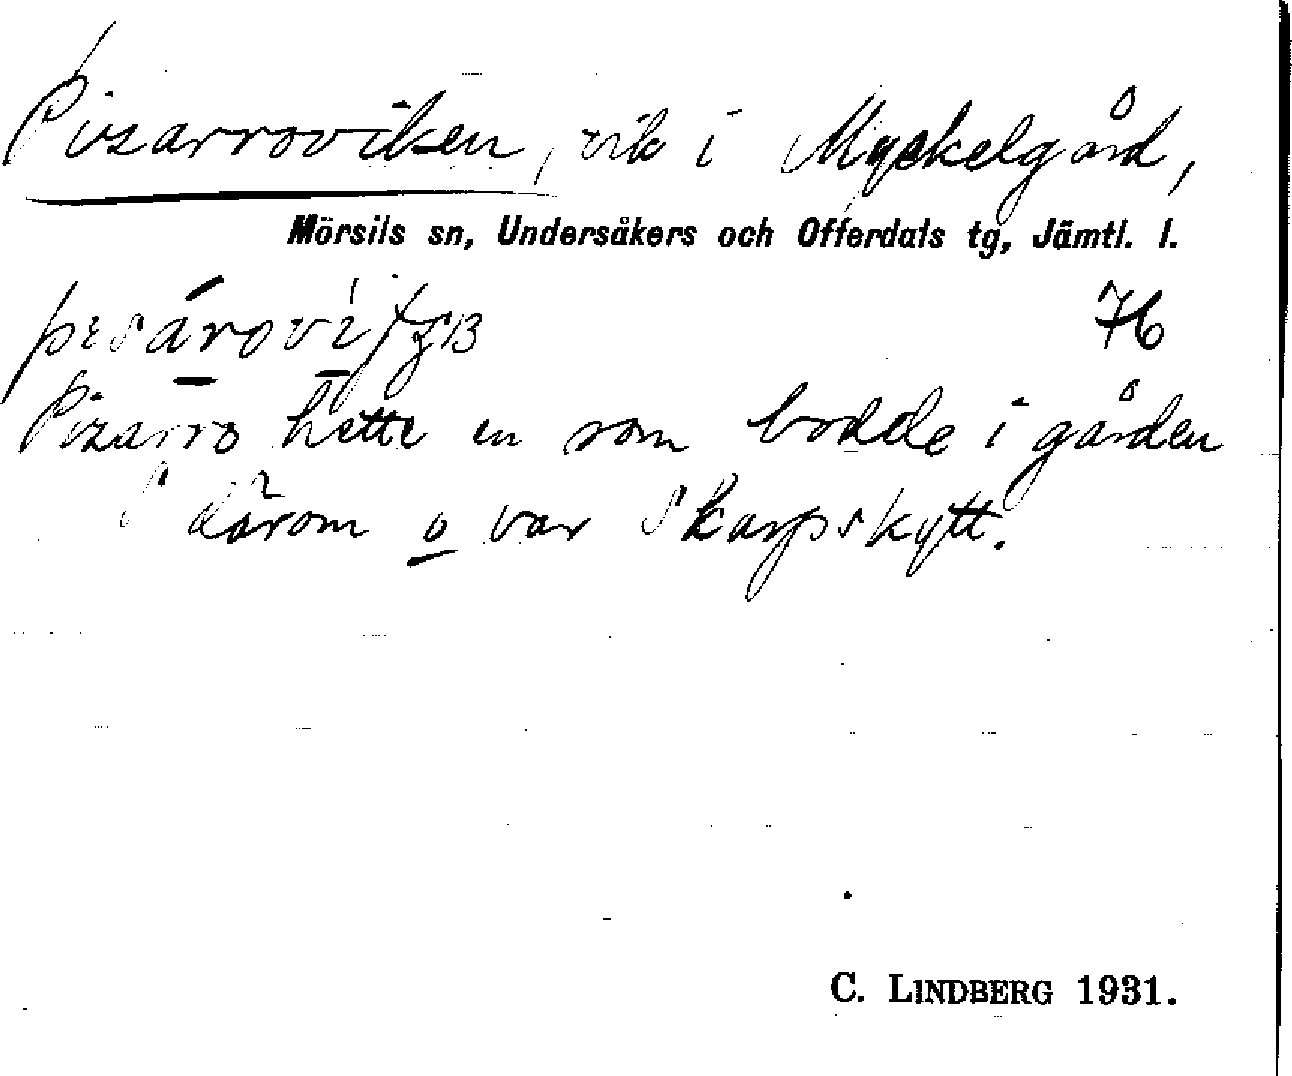 Pizarroviken, vik i Myckelgård,
Mörsils sn, Undersåkers och Offerdals tg, Jämtl. l.
76
Pizarro hette en som bodde i gården
S därom o var Skarpskytt.
C. LINDBERG 1931.